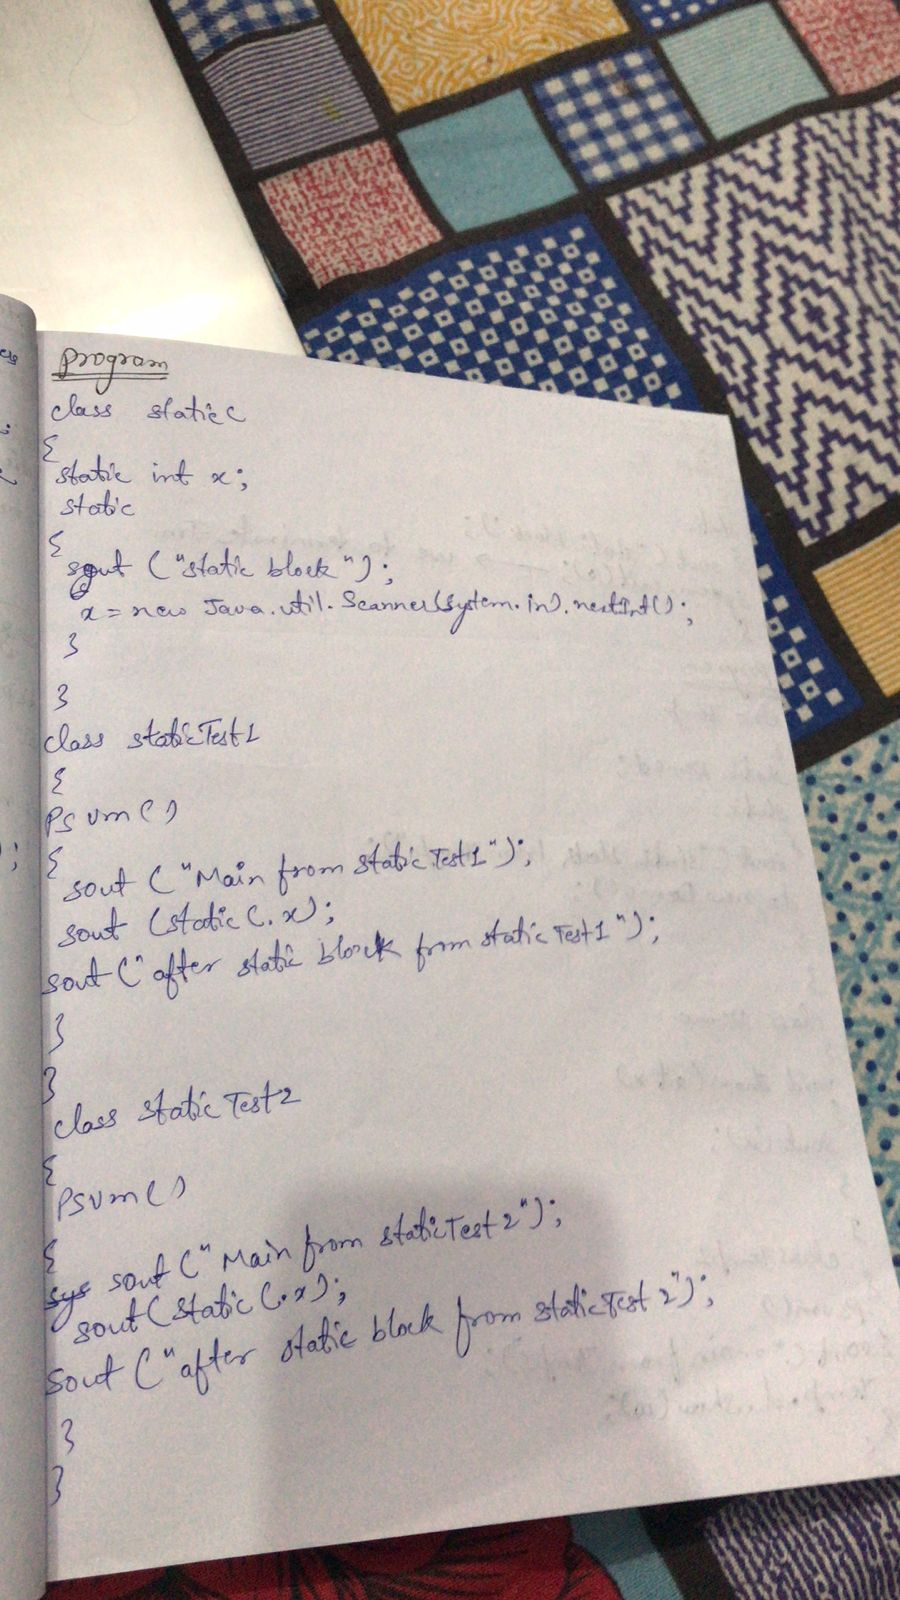 Program
class staticC
{
static int x;
static
{
sout ("static block");
x = new Java.util.Scanner(system.in).nextInt();
}
}
class staticTest1
{
PSvm()
{
sout ("Main from staticTest1");
sout (staticC.x);
sout ("after static block from staticTest1");
}
}
class staticTest2
{
PSvm()
{
sys sout ("Main from staticTest2");
sout (staticC.x);
sout ("after static block from staticTest2");
}
}